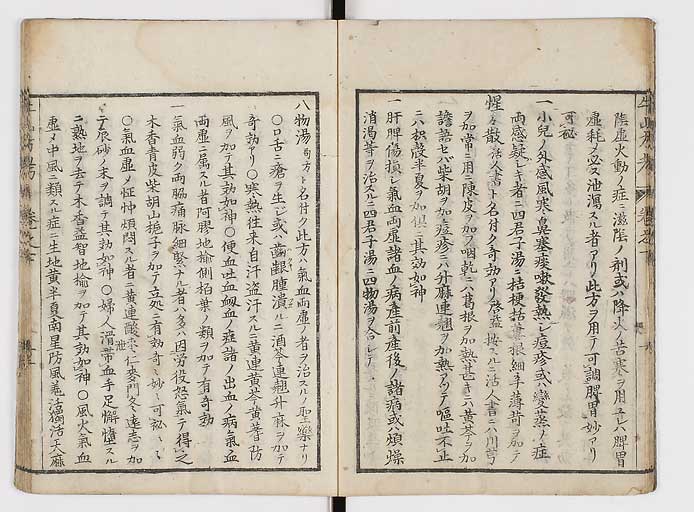 陰虚火動ノ症ニ滋陰ノ剤或ハ降火ノ苦寒ヲ用テハ脾胃
虚耗メ必ス泄瀉スル者アリ此方ヲ用テ可調脾胃妙アリ
可秘
一小児ノ外感風寒ノ鼻塞痰嗽發熱シ痘疹或ハ變蒸ノ症
両感疑シキ者ニ四君子湯ニ桔梗括蔞根細辛薄荷ヲ加テ
惺々散活人書ト名付ク奇効アリ啓益按スルニ活人書ニハ川芎
ヲ加嘔ニ用陳皮ヲ加ヘ咽乾ニハ葛根ヲ加熱甚キニハ黄芩ヲ加
譫語セハ柴胡ヲ加痘疹ニハ升麻連翹ヲ加熱アリテ嘔吐不止
ニハ枳殻半夏ヲ加倶ニ其効如神
一肝脾傷損シ氣血両虚諸血ノ病産前産後ノ諸病或ハ煩燥
消渇等ヲ治スルニ四君子湯ニ四物湯ヲ合シテ
八物湯ト名付ク此方ハ氣血両虚ノ者ヲ治スルノ聖藥ナリ
○口舌ニ瘡ヲ生シ或ハ齒齦腫潰ルニ酒芩連翹升麻ヲ加テ
奇効アリ○寒熱往来自汗盗汗スルニ黄連黄芩黄蓍防
風ヲ加テ其効如神○便血吐血衂血ノ症諸ノ出血ノ病氣血
両虚ニ属スル者阿膠地榆側柏葉ノ類ヲ加テ有奇効
一氣血弱ク両脇痛脉細緊ナル者ハ多ハ因労役怒氣テ得之
木香青皮柴胡山梔子ヲ加テ立処ニ有効奇々妙々可秘々々
○氣血虚ノ怔忡煩悶スル者ニ黄連酸棗仁麦門冬遠志ヲ加
テ辰砂ノ末ヲ調テ其効如神○婦人滑帯血手足懈憧スル
ニ熟地ヲ去テ木香益智地榆ヲ加テ其効如神○風火氣血
虚メ中風ノ類スル症ニ生地黄半夏南星防風羗活獨活天麻